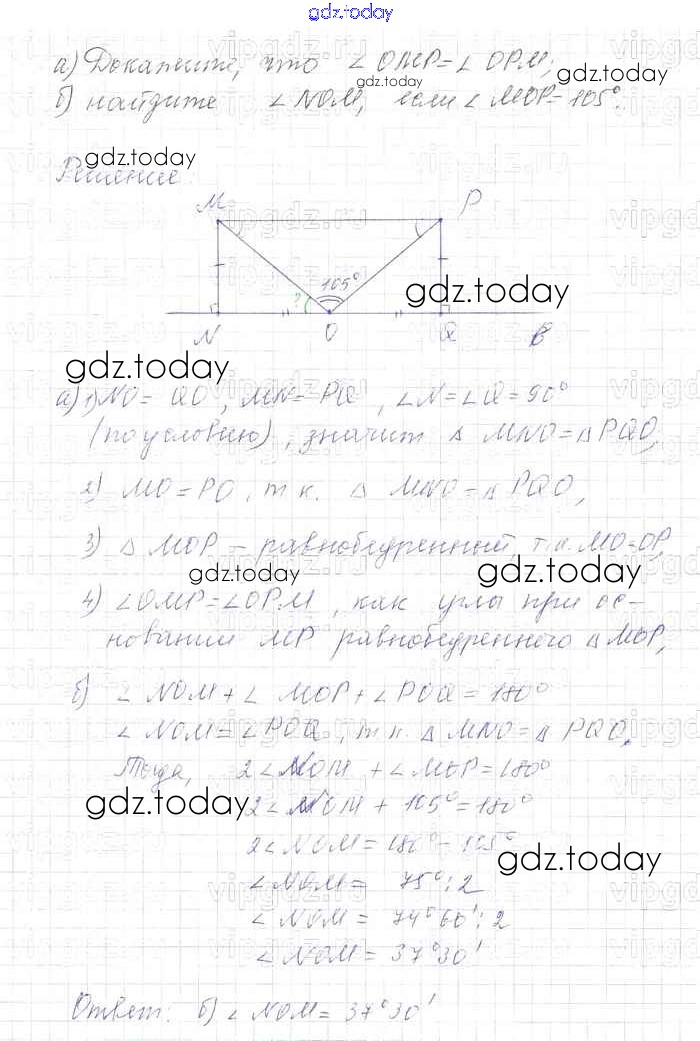 gdz.today
а) Докажите, что ∠ OMP = ∠ OPM;
gdz.today
gdz.today
б) найдите ∠ NOM, если ∠ MOP = 105°.
gdz.today
Решение:
M P
105°
?
gdz.today
N O Q B
gdz.today
а) 1) NO = QO, MN = PQ, ∠N = ∠Q = 90°
(по условию), значит △ MNO = △ PQO,
2) MO = PO, т.к. △ MNO = △ PQO,
3) △ MOP – равнобедренный, т.к. MO = OP,
gdz.today
gdz.today
4) ∠OMP = ∠OPM, как углы при ос-
новании MP равнобедренного △ MOP,
б) ∠ NOM + ∠ MOP + ∠ POQ = 180°
∠ NOM = ∠ POQ, т.к. △ MNO = △ PQO.
Тогда, 2∠NOM + ∠MOP = 180°
gdz.today
2∠NOM + 105° = 180°
2∠NOM = 180° – 105°
gdz.today
∠NOM = 75° : 2
∠NOM = 74°60' : 2
∠NOM = 37°30'
Ответ: б) ∠ NOM = 37°30'